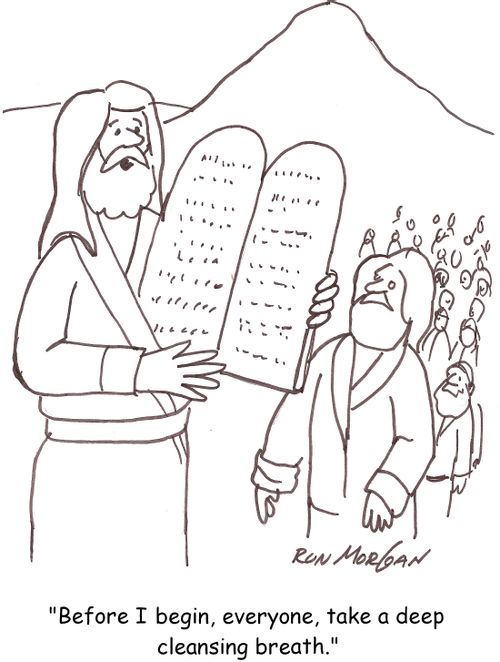 RON MORGAN
"Before I begin, everyone, take a deep
cleansing breath."